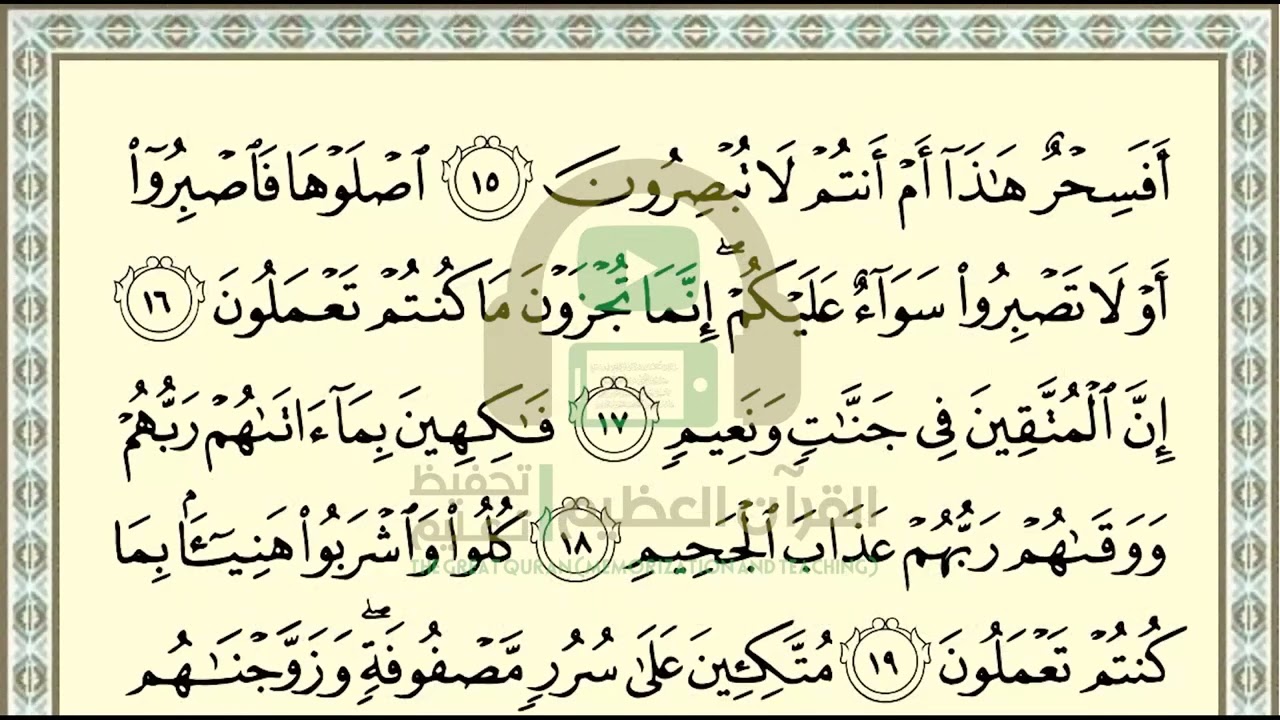 أَفَسِحْرٌ هَٰذَآ أَمْ أَنتُمْ لَا تُبْصِرُونَ ١٥ ٱصْلَوْهَا فَٱصْبِرُوٓا۟
أَوْ لَا تَصْبِرُوا۟ سَوَآءٌ عَلَيْكُمْ ۖ إِنَّمَا تُجْزَوْنَ مَا كُنتُمْ تَعْمَلُونَ ١٦
إِنَّ ٱلْمُتَّقِينَ فِى جَنَّٰتٍ وَنَعِيمٍ ١٧ فَٰكِهِينَ بِمَآ ءَاتَىٰهُمْ رَبُّهُمْ
القرآن العظيم | تحفيظ تعليم
وَوَقَىٰهُمْ رَبُّهُمْ عَذَابَ ٱلْجَحِيمِ ١٨ كُلُوا۟ وَٱشْرَبُوا۟ هَنِيٓـًٔۢا بِمَا
THE GREAT QURAN (MEMORIZATION AND TEACHING)
كُنتُمْ تَعْمَلُونَ ١٩ مُتَّكِـِٔينَ عَلَىٰ سُرُرٍ مَّصْفُوفَةٍ ۖ وَزَوَّجْنَٰهُم